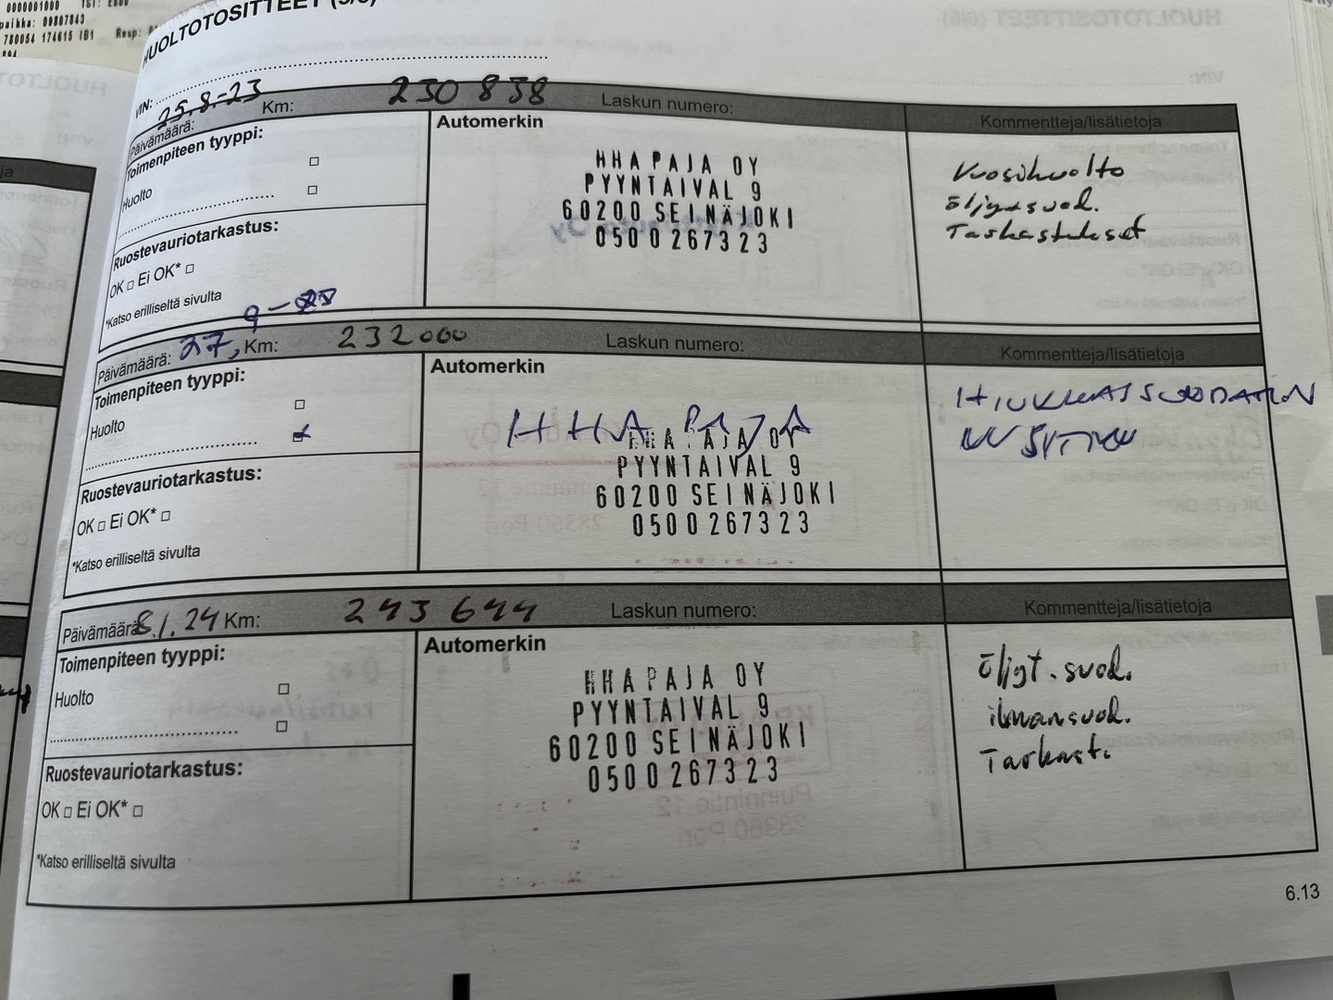 0000001000
paikka: 09807843
780054 174615 IB1 Resp:
HUOLTOTOSITTEET
VIN:
Päivämäärä: 25.8.-23 Km: 230 838 Laskun numero: Kommentteja/lisätietoja
Toimenpiteen tyyppi:
Huolto
Ruostevauriotarkastus:
OK □ Ei OK* □
*Katso erilliseltä sivulta
Automerkin
HHA PAJA OY
PYYNTAIVAL 9
60200 SEINÄJOKI
0500267323
Vuosihuolto
öljy+suod.
Tarkastukset
Päivämäärä: 27, 9- Km: 232000 Laskun numero: Kommentteja/lisätietoja
Toimenpiteen tyyppi:
Huolto
Ruostevauriotarkastus:
OK □ Ei OK* □
*Katso erilliseltä sivulta
Automerkin
HHA PAJA
HHA PAJA OY
PYYNTAIVAL 9
60200 SEINÄJOKI
0500267323
HIUKKASSUODATIN
Päivämäärä: 8.1.24 Km: 243 644 Laskun numero: Kommentteja/lisätietoja
Toimenpiteen tyyppi:
Huolto
Ruostevauriotarkastus:
OK □ Ei OK* □
*Katso erilliseltä sivulta
Automerkin
HHA PAJA OY
PYYNTAIVAL 9
60200 SEINÄJOKI
0500267323
öljyt.suod.
ilmansuod.
Tarkast.
6.13